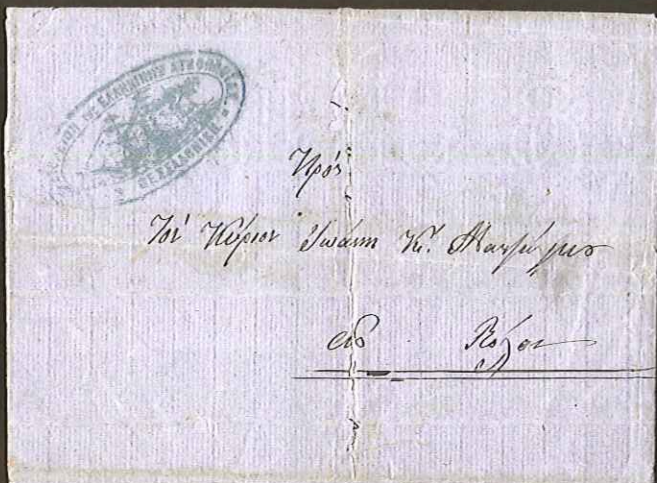 ΕΛΛΗΝΙΚΗΣ ΑΤΜΟΠΛΟΪΑΣ
ΘΕΣΣΑΛΟΝΙΚΗ
Πρός
Τόν Κύριον Ἰωάννη Κ.
εἰς Βόλον